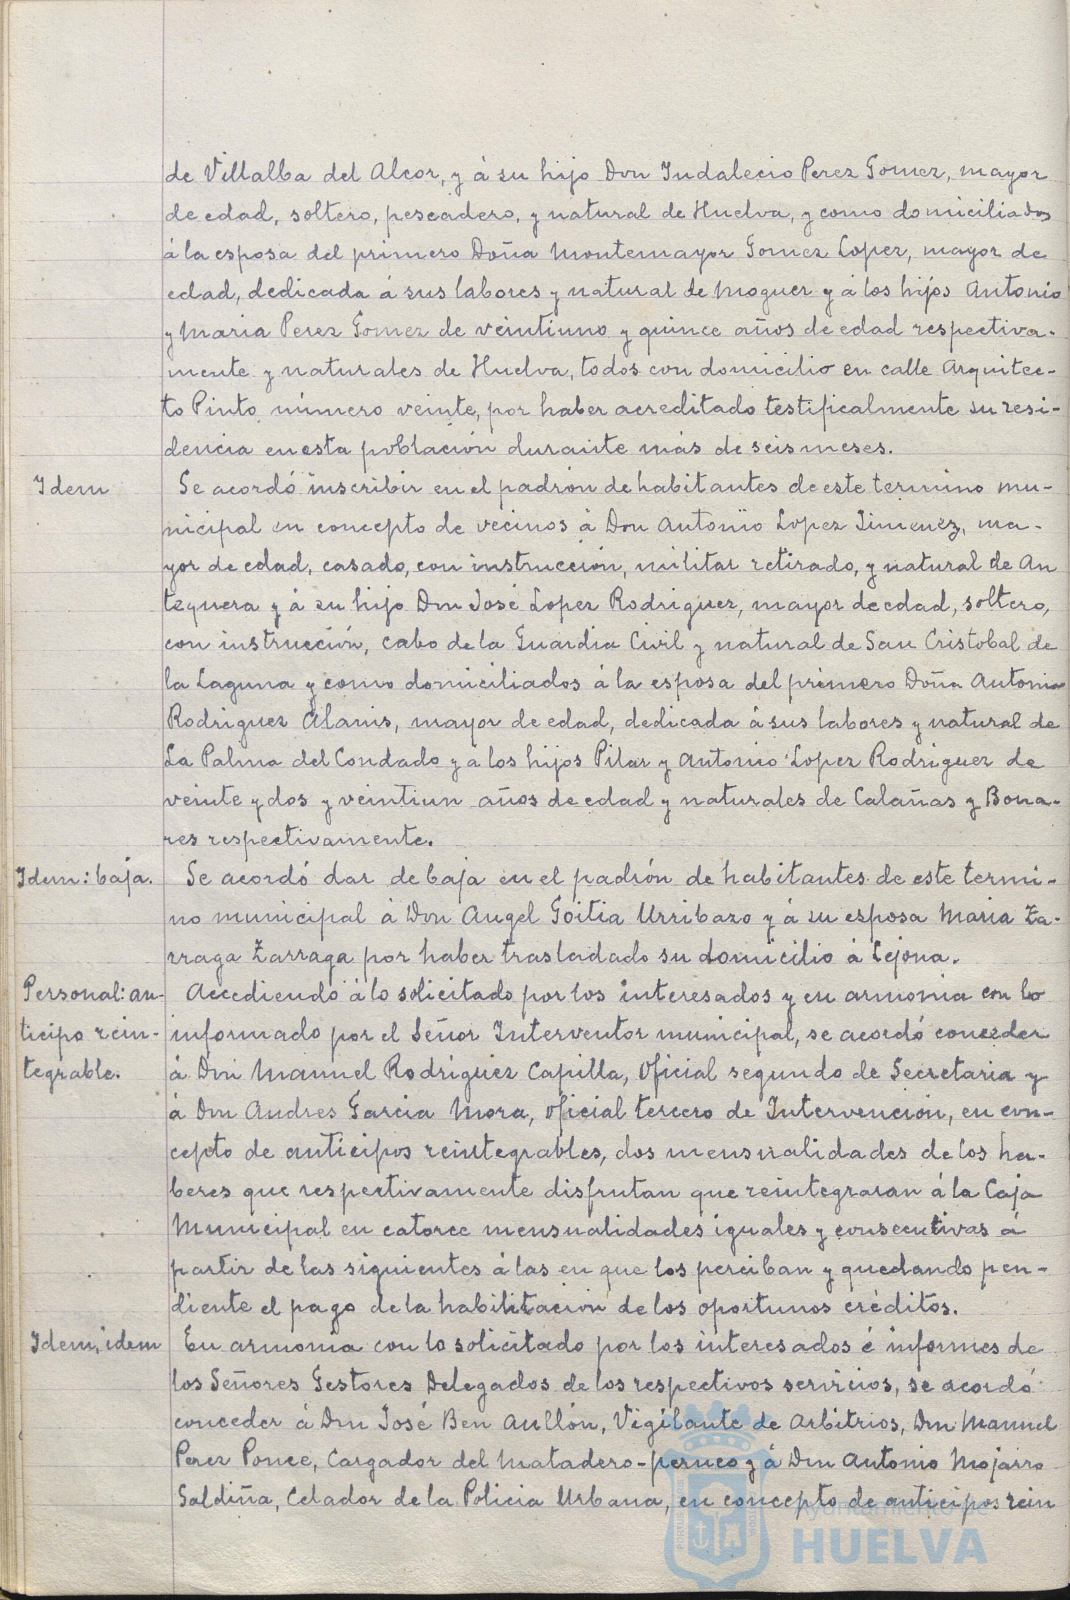 de Villalba del Alcor, y á su hijo Don Indalecio Perez Gomez, mayor
de edad, soltero, pescadero, y natural de Huelva, y como domiciliados
á la esposa del primero Doña Montemayor Gomez Lopez, mayor de
edad, dedicada á sus labores y natural de Moguer y á los hijos Antonio
y Maria Perez Gomez de veintiuno y quince años de edad respectiva-
mente y naturales de Huelva, todos con domicilio en calle Arquitec-
to Pinto número veinte, por haber acreditado testificalmente su resi-
dencia en esta población durante más de seis meses.
Idem
Se acordó inscribir en el padrón de habitantes de este termino mu-
nicipal en concepto de vecinos á Don Antonio Lopez Jimenez, ma-
yor de edad, casado, con instrucción, militar retirado, y natural de An
tequera y á su hijo Don José Lopez Rodriguez, mayor de edad, soltero,
con instrucción, cabo de la Guardia Civil y natural de San Cristobal de
la Laguna y como domiciliados á la esposa del primero Doña Antonia
Rodriguez Alanis, mayor de edad, dedicada á sus labores y natural de
La Palma del Condado y a los hijos Pilar y Antonio Lopez Rodriguez de
veinte y dos y veintiun años de edad y naturales de Calañas y Bona-
res respectivamente.
Idem: baja.
Se acordó dar de baja en el padrón de habitantes de este termi-
no municipal á Don Angel Goitia Urribazo y á su esposa Maria Za-
rraga Zarraga por haber trasladado su domicilio á Lejona.
Personal: an-
ticipo rein-
tegrable.
Accediendo á lo solicitado por los interesados y en armonia con lo
informado por el Señor Interventor municipal, se acordó conceder
á Don Manuel Rodriguez Capilla, Oficial segundo de Secretaria y
á Don Andres Garcia Mora, oficial tercero de Intervención, en con-
cepto de anticipos reintegrables, dos mensualidades de los ha-
beres que respectivamente disfrutan que reintegraran á la Caja
Municipal en catorce mensualidades iguales y consecutivas á
partir de las siguientes á las en que los perciban y quedando pen-
diente el pago de la habilitación de los oportunos créditos.
Idem, idem
En armonia con lo solicitado por los interesados é informes de
los Señores Gestores Delegados de los respectivos servicios, se acordó
conceder á Don José Ben Aullón, Vigilante de Arbitrios, Don Manuel
Perez Ponce, Cargador del Matadero-perneo y á Don Antonio Mojarro
Saldiña, Celador de la Policia Urbana, en concepto de anticipos rein
Ayuntamiento de
HUELVA